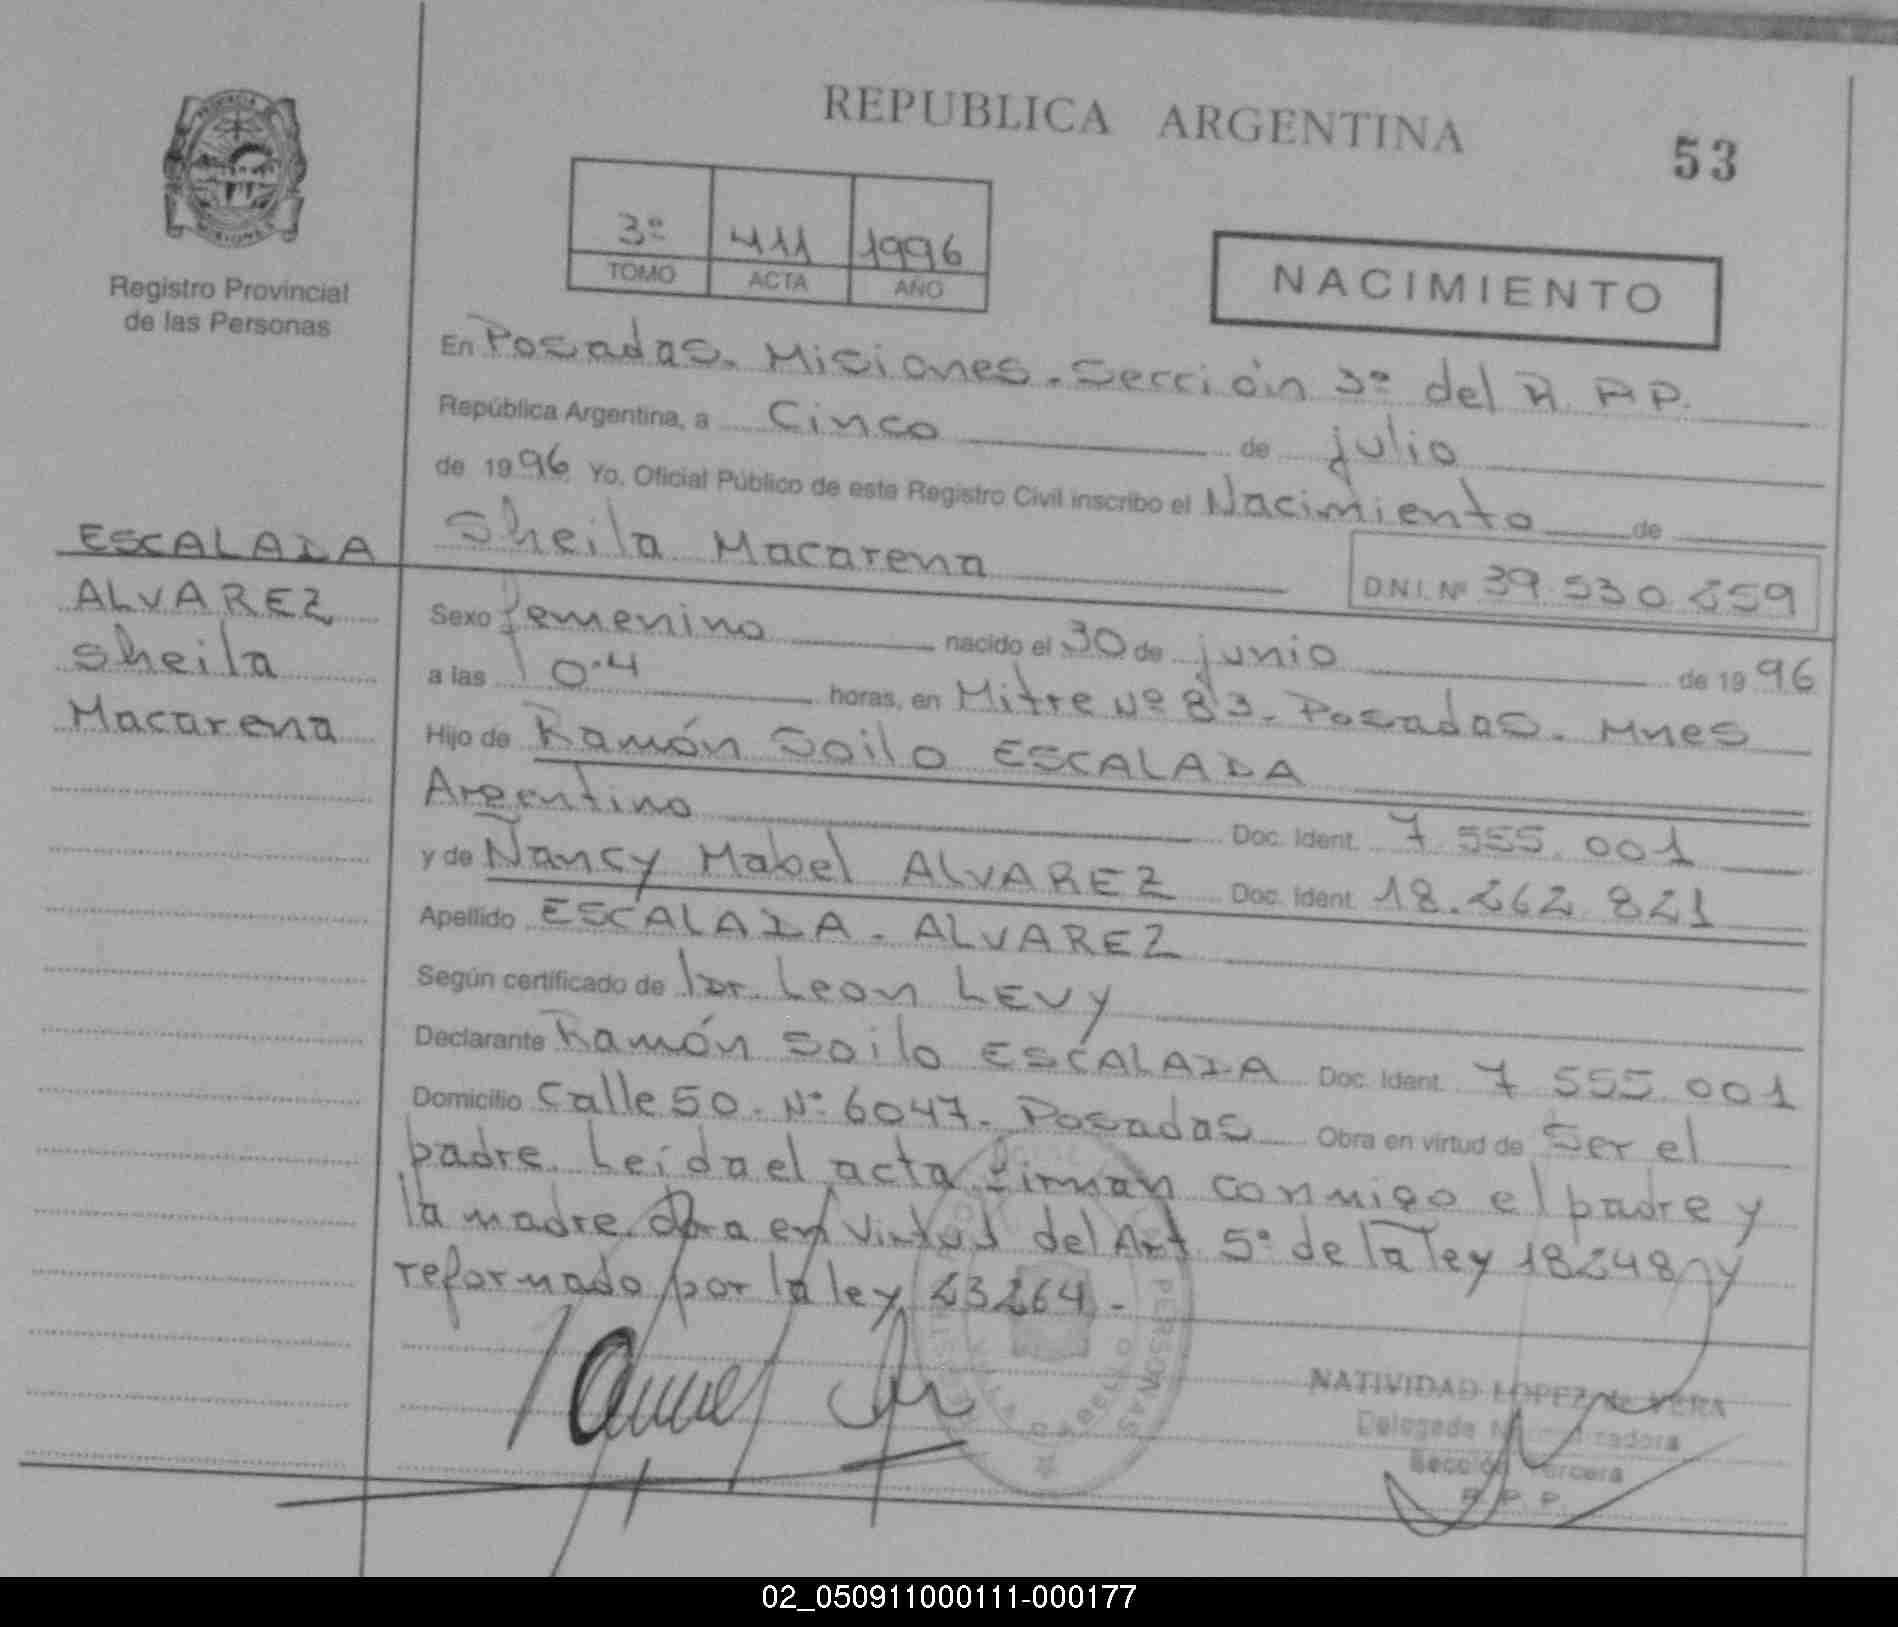 REPUBLICA ARGENTINA
53
3º 411 1996
TOMO ACTA AÑO
NACIMIENTO
Registro Provincial
de las Personas
En Posadas. Misiones. Sección 3º del R. P.P.
República Argentina, a Cinco de julio
de 1996 Yo, Oficial Público de este Registro Civil inscribo el Nacimiento de
Sheila Macarena
D.N.I. Nº 39.530.259
ESCALADA
ALVAREZ
Sheila
Macarena
Sexo femenino nacido el 30 de junio de 1996
a las 0.4 horas, en Mitre Nº 83. Posadas. Mnes
Hijo de Ramón Soilo ESCALADA
Argentino Doc. Ident. 7.555.001
y de Ñancy Mabel ALVAREZ Doc. Ident. 18.262.821
Apellido ESCALADA. ALVAREZ
Según certificado de Dr. Leon LEVY
Declarante Ramón Soilo ESCALADA Doc. Ident. 7 555.001
Domicilio Calle 50. Nº 6047. Posadas Obra en virtud de Ser el
padre. Leida el acta firman conmigo el padre y
la madre. Obra en virtud del Art 5º de la ley 18248 y
reformado por la ley 23264.-
NATIVIDAD LOPEZ de VERA
Delegada Normalizadora
Sección Tercera
R. P. P.
02_050911000111-000177